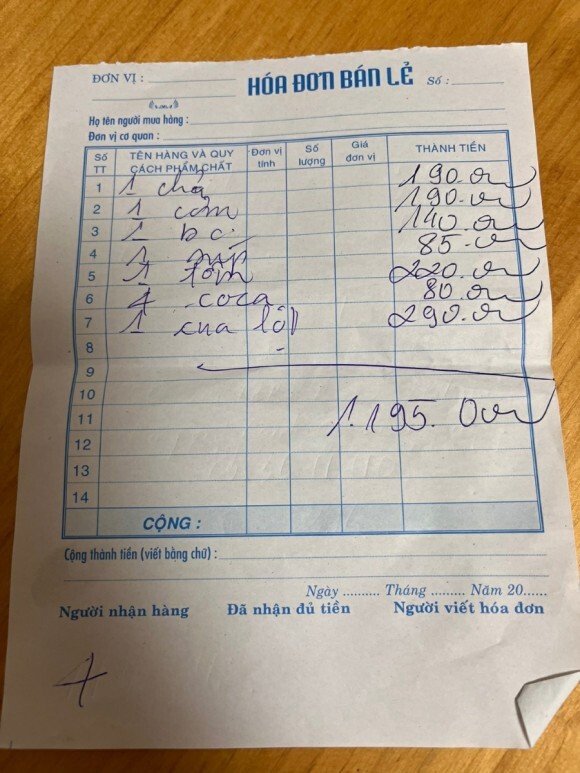 ĐƠN VỊ :
HÓA ĐƠN BÁN LẺ Số :
Họ tên người mua hàng :
Đơn vị cơ quan :
Số TT TÊN HÀNG VÀ QUY CÁCH PHẨM CHẤT Đơn vị tính Số lượng Giá đơn vị THÀNH TIỀN
1 1 chả 190.000
2 1 cơm 190.000
3 1 bc 140.000
4 1 85.000
5 1 tôm 220.000
6 4 coca 80.000
7 1 cua lột 290.000
8
9
10
11 1.195.000
12
13
14
CỘNG :
Cộng thành tiền (viết bằng chữ) :
Ngày .......... Tháng ......... Năm 20......
Người nhận hàng Đã nhận đủ tiền Người viết hóa đơn
4